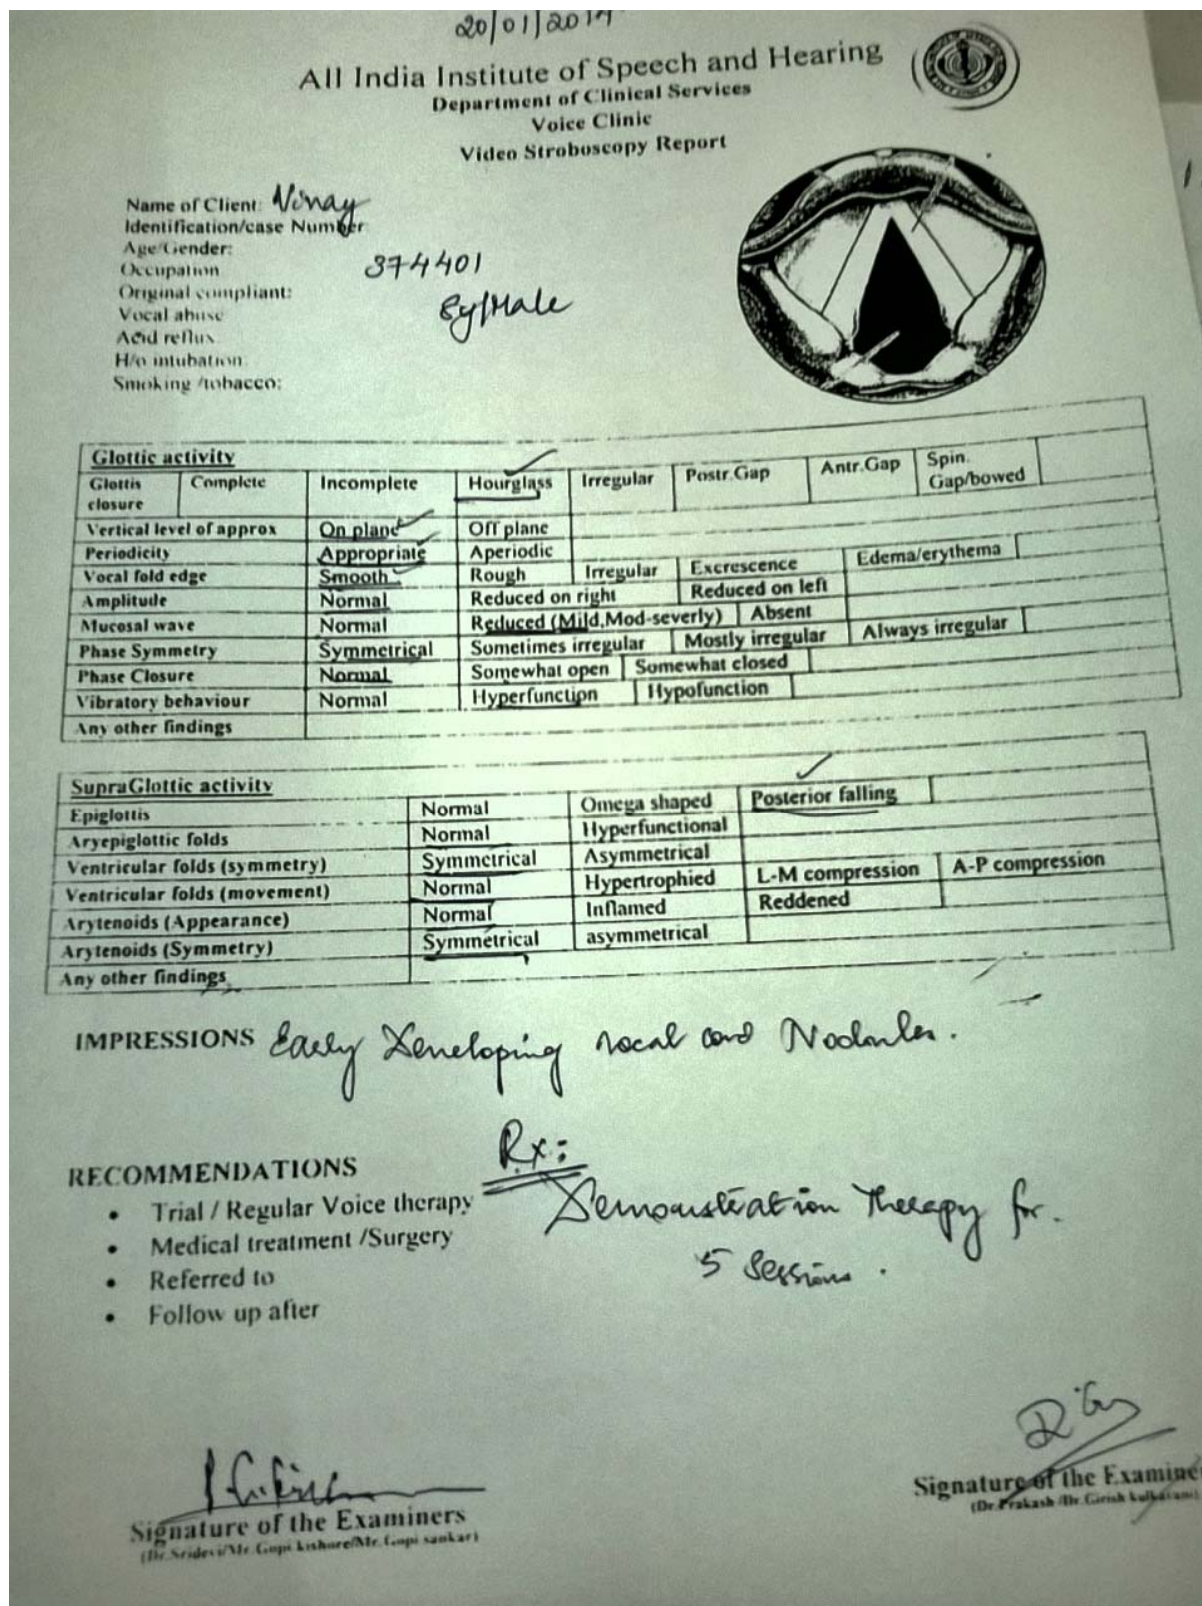 20/01/2014
All India Institute of Speech and Hearing
Department of Clinical Services
Voice Clinic
Video Stroboscopy Report
Name of Client: Vinay
Identification/case Number
Age/Gender:
Occupation 374401
Original compliant:
Vocal abuse 8y/Male
Acid reflux
H/o intubation
Smoking /tobacco:
Glottic activity
Glottis closure Complete Incomplete Hourglass Irregular Postr.Gap Antr.Gap Spin. Gap/bowed
Vertical level of approx On plane Off plane
Periodicity Appropriate Aperiodic
Vocal fold edge Smooth Rough Irregular Excrescence Edema/erythema
Amplitude Normal Reduced on right Reduced on left
Mucosal wave Normal Reduced (Mild,Mod-severly) Absent
Phase Symmetry Symmetrical Sometimes irregular Mostly irregular Always irregular
Phase Closure Normal Somewhat open Somewhat closed
Vibratory behaviour Normal Hyperfunction Hypofunction
Any other findings
SupraGlottic activity
Epiglottis Normal Omega shaped Posterior falling
Aryepiglottic folds Normal Hyperfunctional
Ventricular folds (symmetry) Symmetrical Asymmetrical
Ventricular folds (movement) Normal Hypertrophied L-M compression A-P compression
Arytenoids (Appearance) Normal Inflamed Reddened
Arytenoids (Symmetry) Symmetrical asymmetrical
Any other findings
IMPRESSIONS Early Developing vocal cord Nodules.
RECOMMENDATIONS Rx:
• Trial / Regular Voice therapy Demonstration Therapy for
• Medical treatment /Surgery 5 Sessions.
• Referred to
• Follow up after
Signature of the Examiners
(Dr.Sridevi/Mr.Gopi kishore/Mr.Gopi sankar)
Signature of the Examine
(Dr.Prakash /Dr.Girish kulkarani)